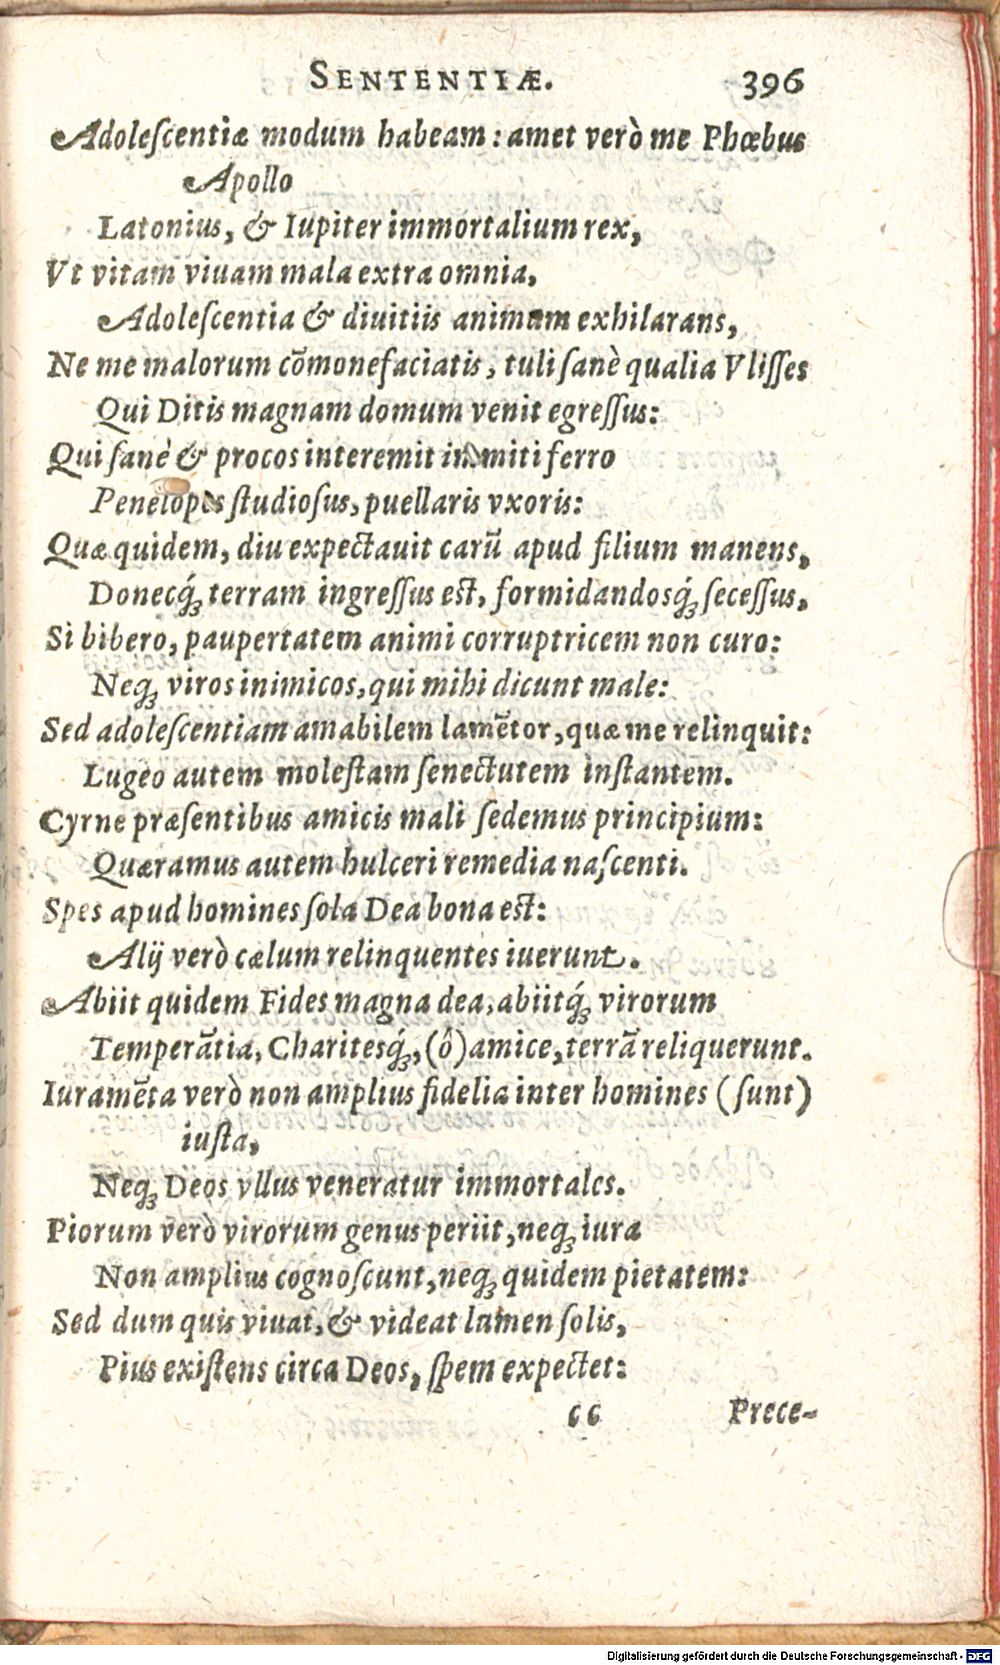 SENTENTIÆ. 396
Adoleſcentiæ modum habeam: amet verò me Phœbus
Apollo
Latonius, & Iupiter immortalium rex,
Vt vitam viuam mala extra omnia,
Adoleſcentia & diuitiis animum exhilarans,
Ne me malorum cōmonefaciatis, tuli ſanè qualia Vliſſes
Qui Ditis magnam domum venit egreſſus:
Qui ſanè & procos interemit inmiti ferro
Penelopes ſtudioſus, puellaris vxoris:
Quæ quidem, diu expectauit carū apud filium manens,
Donecq́ꝫ terram ingreſſus est, formidandosq́ꝫ ſeceſſus,
Si bibero, paupertatem animi corruptricem non curo:
Neqꝫ viros inimicos, qui mihi dicunt male:
Sed adoleſcentiam amabilem lamētor, quæ me relinquit:
Lugeo autem moleſtam ſenectutem inſtantem.
Cyrne præſentibus amicis mali ſedemus principium:
Quæramus autem hulceri remedia naſcenti.
Spes apud homines ſola Dea bona est:
Alij verò cælum relinquentes iuerunt.
Abiit quidem Fides magna dea, abiitq́ꝫ virorum
Temperātia, Charitesq́ꝫ, (ô) amice, terrā reliquerunt.
Iuramēta verò non amplius fidelia inter homines (ſunt)
iuſta,
Neqꝫ Deos vllus veneratur immortales.
Piorum verò virorum genus periit, neqꝫ iura
Non amplius cognoſcunt, neqꝫ quidem pietatem:
Sed dum quis viuat, & videat lumen ſolis,
Pius exiſtens circa Deos, ſpem expectet:
cc Prece-
Digitalisierung gefördert durch die Deutsche Forschungsgemeinschaft - DFG